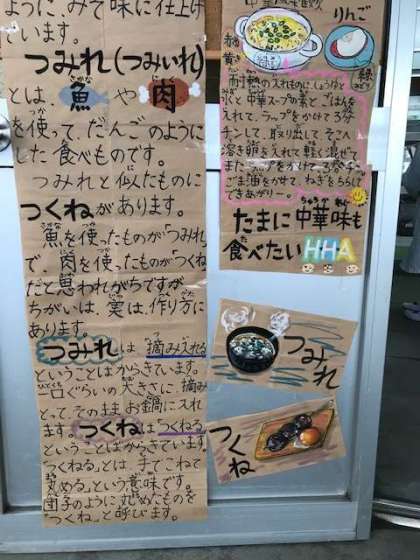 ように、みそ味に仕上げ
ています。
つみれ(つみいれ)
とは、魚や肉
を使って、だんごのように
した食べものです。
つみれと似たものに
つくねがあります。
魚を使ったものが「つみれ」
で、肉を使ったものが「つくね」
だと思われがちですが
ちがいは、実は、作り方に
あります。
つみれは「摘み入れる」
ということばからきています。
一口ぐらいの大きさに摘み
とって、そのままお鍋に入れ
ます。つくねは「つくねる」
ということばからきています。
「つくねる」とは、手でこねて
「丸める」という意味です。
団子のように丸めたものを
「つくね」と呼びます。
りんご
赤
黄
緑
耐熱のいれものに、しょうゆと
水と中華スープの素とごはんを
入れて、ラップをかけて3分
チンして、取り出して、そこへ
溶き卵を入れて軽く混ぜて
またラップをかけて
ごま油をかけて、ねぎをちらして
できあがり
たまに中華味も
食べたいHHA
つみれ
つくね